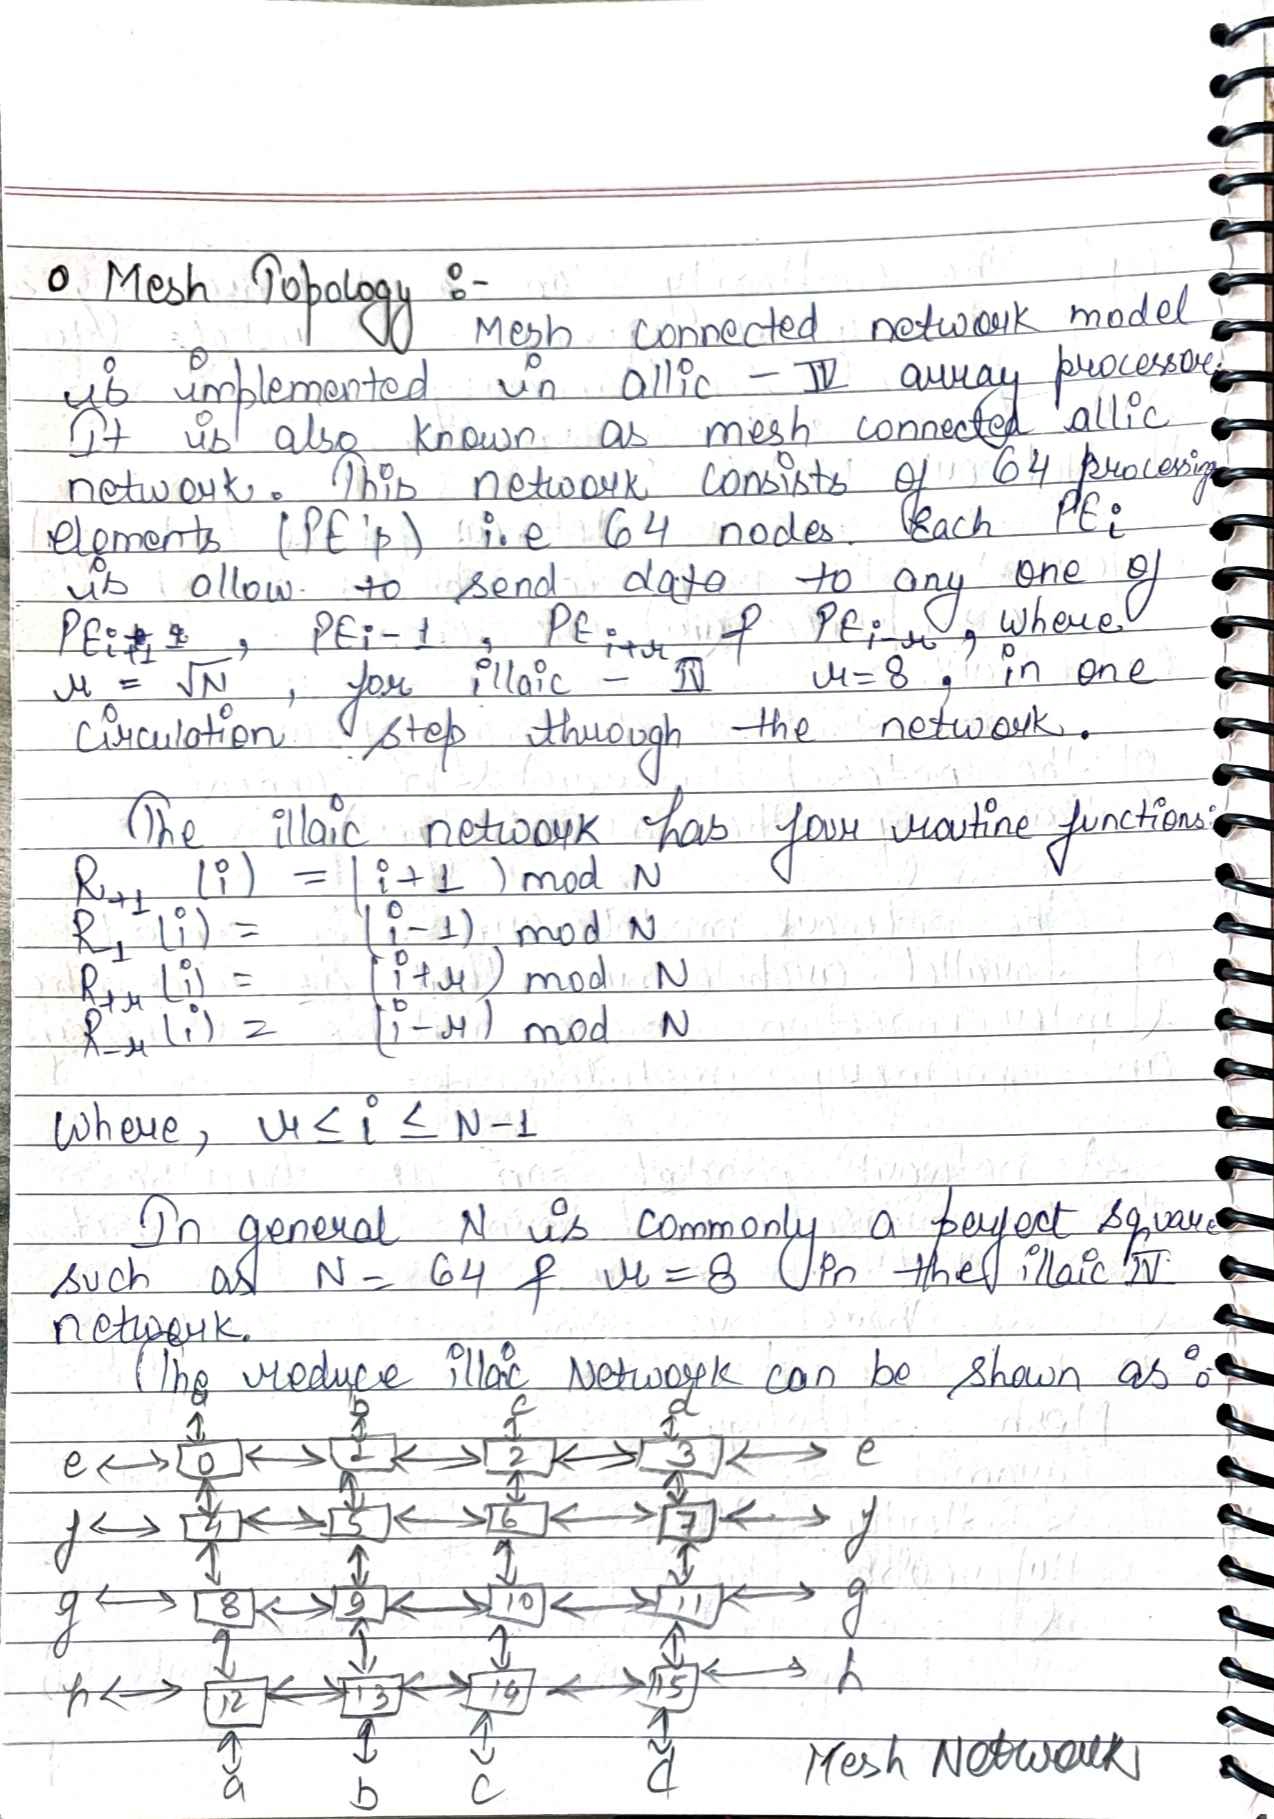 o Mesh Topology :-
Mesh connected network model
is implemented in allic - IV array processor.
It is also known as mesh connected allic
network. This network consists of 64 processing
elements (PE's) i.e 64 nodes. Each PEi
is allow to send data to any one of
PEi+1, PEi-1, PEi+r & PEi-r, where
r = √N, for illaic - IV r=8, in one
circulation step through the network.
The illaic network has four routine functions:
R+1 (i) = (i+1) mod N
R-1 (i) = (i-1) mod N
R+r (i) = (i+r) mod N
R-r (i) = (i-r) mod N
where, r ≤ i ≤ N-1
In general N is commonly a perfect square
such as N = 64 & r = 8 in the illaic IV
network.
The reduce illaic Network can be shown as :-
a b c d
e 0 1 2 3 e
f 4 5 6 7 f
g 8 9 10 11 g
h 12 13 14 15 h
a b c d
Mesh Network